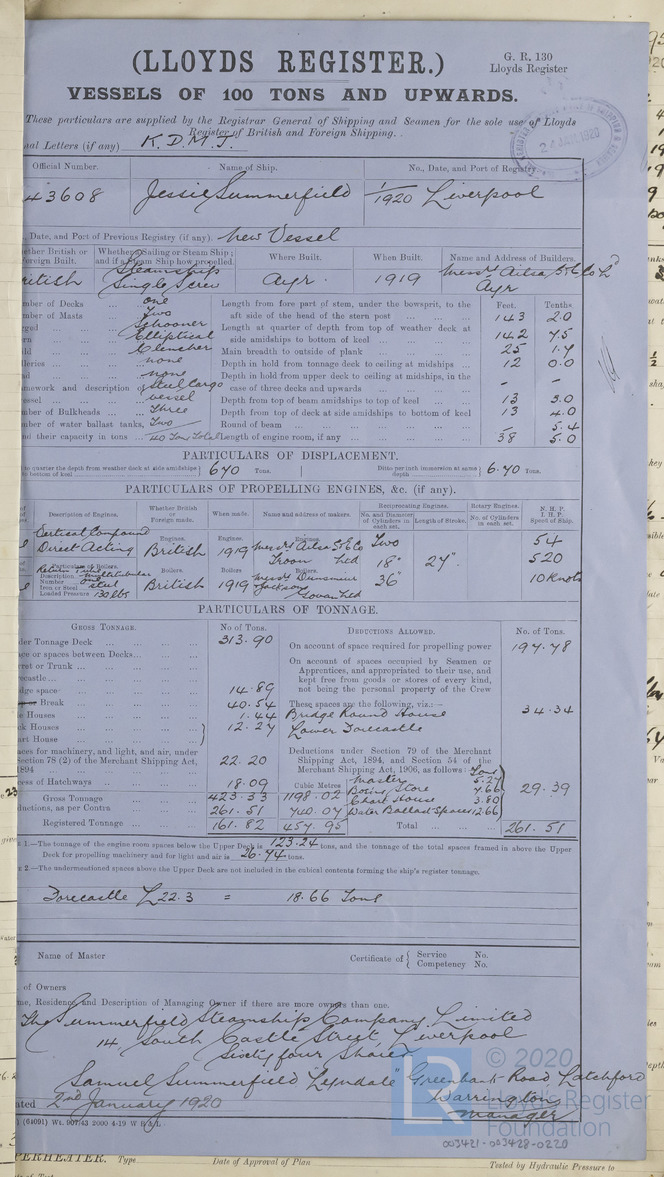 (LLOYDS REGISTER.)
G. R. 130
Lloyds Register
VESSELS OF 100 TONS AND UPWARDS.
These particulars are supplied by the Registrar General of Shipping and Seamen for the sole use of Lloyds
Register of British and Foreign Shipping.
24 JAN 1920
al Letters (if any) K.D.M.J.
Official Number. Name of Ship. No., Date, and Port of Registry
43608 Jessie Summerfield 1/1920 Liverpool
Date, and Port of Previous Registry (if any). New Vessel
ether British or Foreign Built. Whether Sailing or Steam Ship and if a Steam Ship how propelled. Where Built. When Built. Name and Address of Builders.
ritish Steamship Single Screw Ayr. 1919 Messrs Ailsa S.B. Co Ld Ayr
mber of Decks one Length from fore part of stem, under the bowsprit, to the aft side of the head of the stern post Feet. 143 Tenths. 2.0
mber of Masts Two
Schooner Length at quarter of depth from top of weather deck at side amidships to bottom of keel 142 7.5
Elliptical
Clencher Main breadth to outside of plank 25 1.7
lleries none Depth in hold from tonnage deck to ceiling at midships 12 0.0
none Depth in hold from upper deck to ceiling at midships, in the case of three decks and upwards - -
mework and description of essel Steel Cargo vessel Depth from top of beam amidships to top of keel 13 3.0
mber of Bulkheads Three Depth from top of deck at side amidships to bottom of keel 13 4.0
mber of water ballast tanks, Two Round of beam - 5.4
nd their capacity in tons 40 Tons Total Length of engine room, if any 38 5.0
PARTICULARS OF DISPLACEMENT.
to quarter the depth from weather deck at side amidships to bottom of keel 670 Tons. Ditto per inch immersion at same depth 6.70 Tons.
PARTICULARS OF PROPELLING ENGINES, &c. (if any).
Description of Engines. Whether British or Foreign made. When made. Name and address of makers. Reciprocating Engines. No. and Diameter of Cylinders in each set. Length of Stroke. Rotary Engines. No. of Cylinders in each set. N. H. P. I. H. P. Speed of Ship.
Vertical Compound Direct Acting Engines. British Engines. 1919 Engines. Messrs Ailsa S.B. Co Ltd Troon Two 18" 27" 54 520
Particulars of Boilers. Return Tube Description Multitubular Number one Iron or Steel Steel Loaded Pressure 130 lbs Boilers. British Boilers 1919 Boilers. Messrs Dunsmuir & Jackson Govan Ltd 36" 10 Knots
PARTICULARS OF TONNAGE.
GROSS TONNAGE. No of Tons. DEDUCTIONS ALLOWED. No. of Tons.
der Tonnage Deck 313.90 On account of space required for propelling power 197.78
ace or spaces between Decks
rret or Trunk On account of spaces occupied by Seamen or Apprentices, and appropriated to their use, and kept free from goods or stores of every kind, not being the personal property of the Crew
recastle
dge space 14.89
Break 40.54 These spaces are the following, viz.:— 34.34
e Houses 1.44 Bridge Round House
ck Houses 12.27 Lower Forecastle
art House
aces for machinery, and light, and air, under Section 78 (2) of the Merchant Shipping Act, 1894 22.20 Deductions under Section 79 of the Merchant Shipping Act, 1894, and Section 54 of the Merchant Shipping Act, 1906, as follows: Tons
Master 5.27
ess of Hatchways 18.09 Cubic Metres Bosns Store 7.66 29.39
Gross Tonnage 423.33 1198.02 Chart House 3.80
ductions, as per Contra 261.51 740.07 Water Ballast Spaces 12.66
Registered Tonnage 161.82 457.95 Total 261.51
1.—The tonnage of the engine room spaces below the Upper Deck is 123.24 tons, and the tonnage of the total spaces framed in above the Upper
Deck for propelling machinery and for light and air is 26.74 tons.
2.—The undermentioned spaces above the Upper Deck are not included in the cubical contents forming the ship's register tonnage.
Forecastle L 22.3 = 18.66 Tons
Name of Master Certificate of { Service No. Competency No.
of Owners
me, Residence, and Description of Managing Owner if there are more owners than one.
The Summerfield Steamship Company Limited
14 South Castle Street, Liverpool
Sixty four Shares
Samuel Summerfield "Lyndale" Greenbank Road Latchford
Warrington
Manager
ated 2nd January 1920
(64091) Wt. 907/43 2000 4-19 W B & L
© 2020
Lloyd's Register
Foundation
003421-003428-0220
PERHEATER. Type Date of Approval of Plan Tested by Hydraulic Pressure to